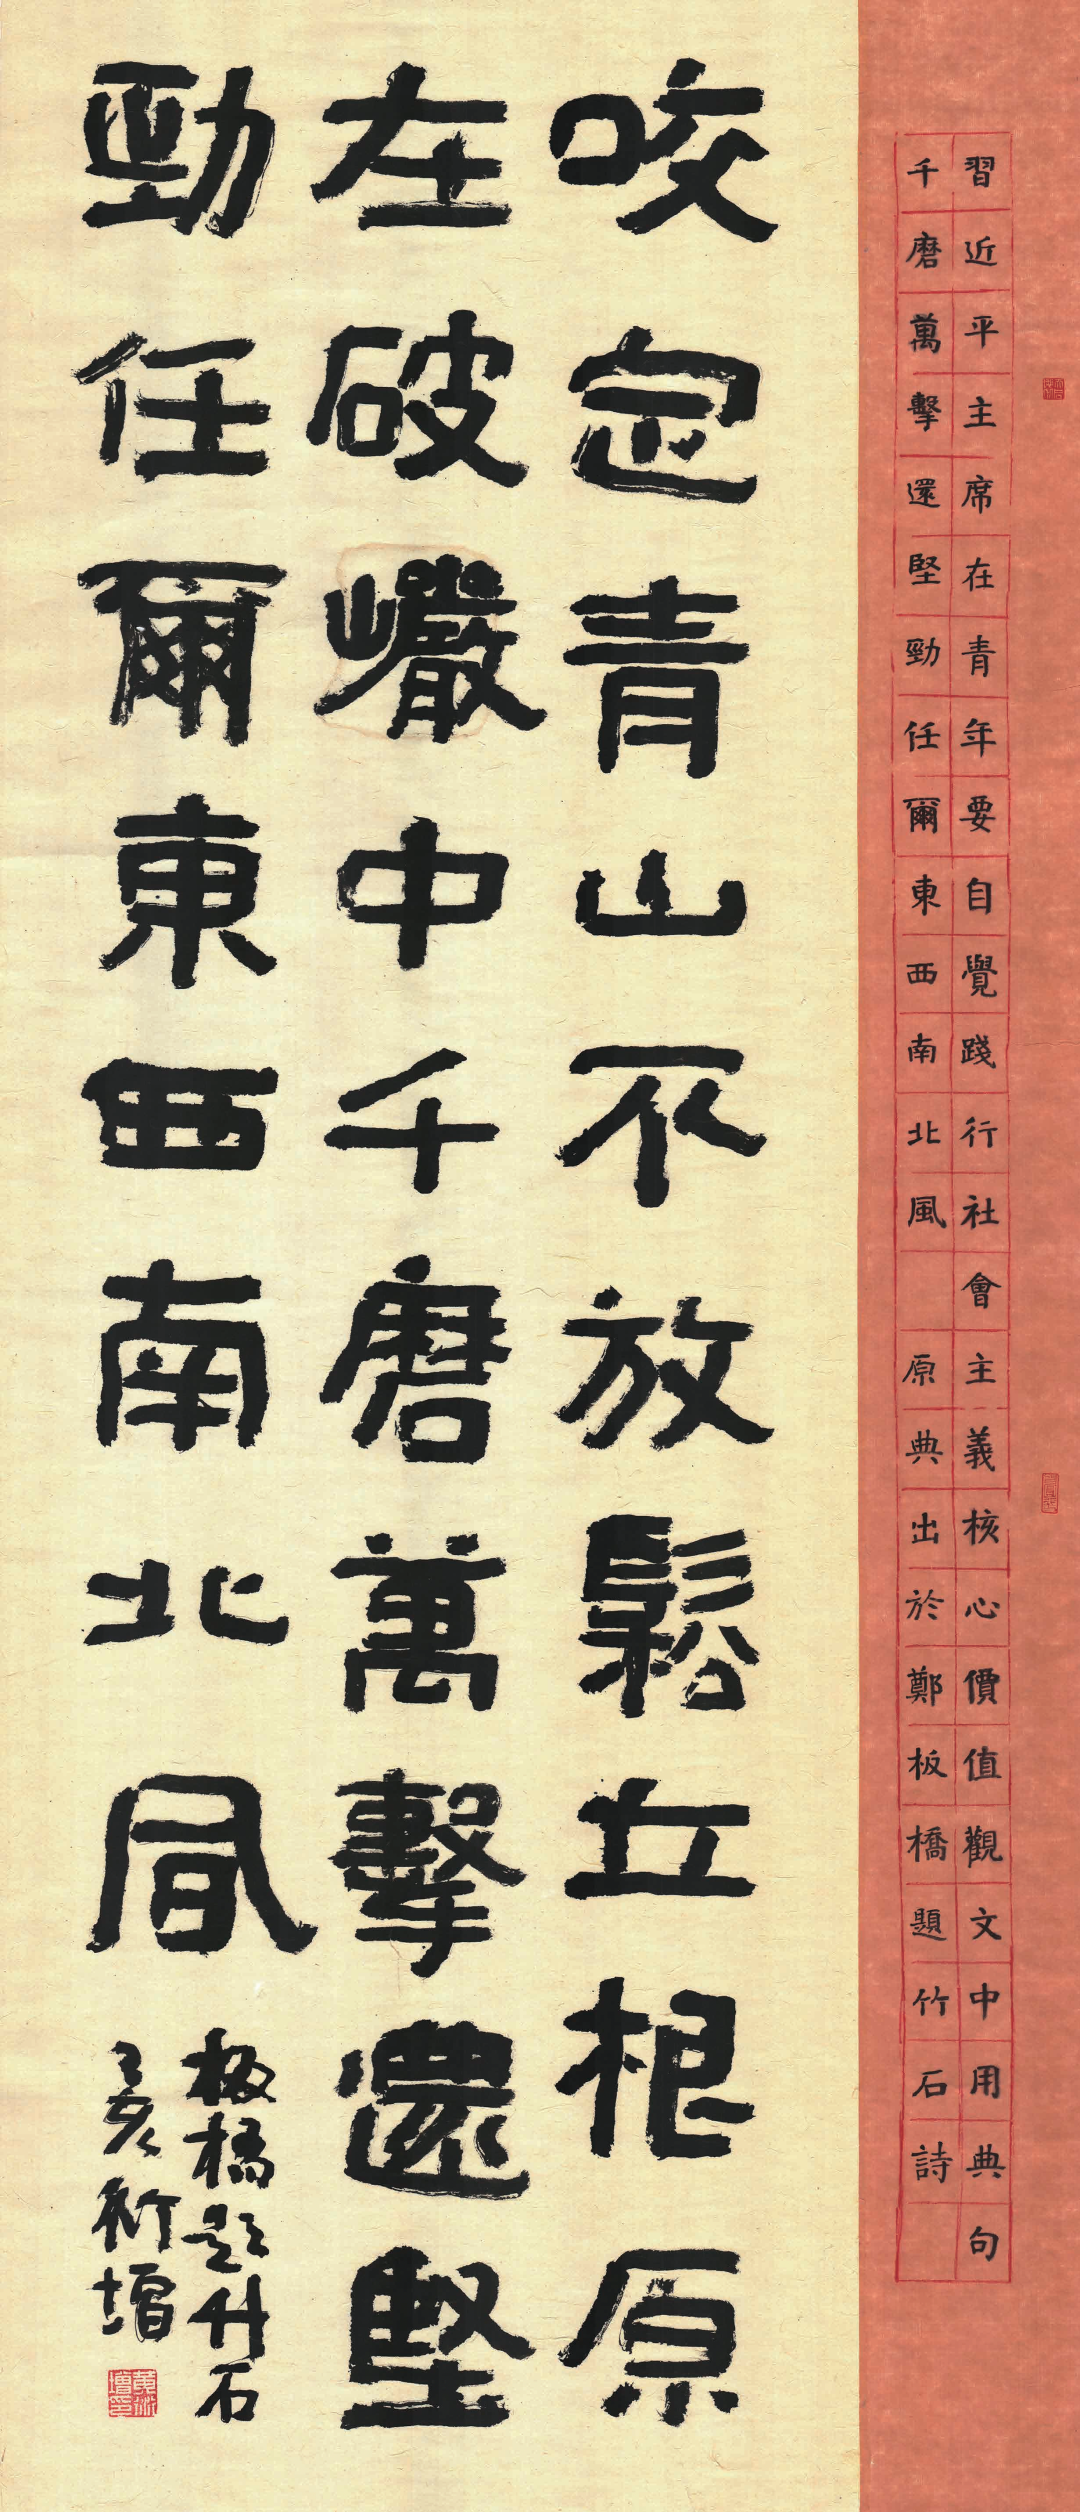 習近平主席在青年要自覺踐行社會主義核心價值觀文中用典句
千磨萬擊還堅勁任爾東西南北風 原典出於鄭板橋題竹石詩
咬定青山不放鬆立根原
在破巖中千磨萬擊還堅
勁任爾東西南北風
板橋題竹石
己亥衍增